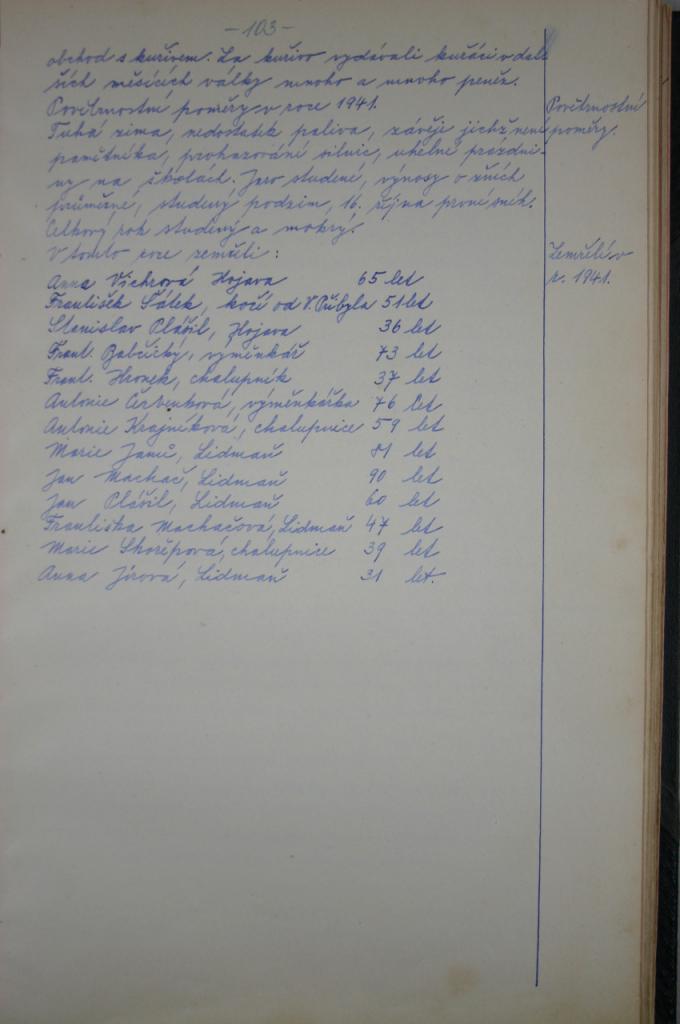 - 103 -
obchod s kuřivem. Za kuřivo vydávali kuřáci v dal-
ších měsících války mnoho a mnoho peněz.
Povětrnostní poměry v roce 1941.
Povětrnostní
poměry.
Tuhá zima, nedostatek paliva, závěje jichž není
pamětníka, prohazování silnic, uhelné prázdni-
ny na školách. Jaro studené, výnosy o žních
průměrné, studený podzim, 16. října první sníh.
Celkový rok studený a mokrý.
V tomto roce zemřeli:
Zemřelí v
r. 1941.
Anna Vichrová Hojava 65 let
František Šátek, kočí od V. Přibyla 51 let
Stanislav Plášil, Hojava 36 let
Frant. Babčický, výměnkář 73 let
Frant. Hronek, chalupník 37 let
Antonie Červenková, výměnkářka 76 let
Antonie Krajníková, chalupnice 59 let
Marie Janů, Lidmaň 81 let
Jan Machač, Lidmaň 90 let
Jan Plášil, Lidmaň 60 let
Františka Machačová, Lidmaň 47 let
Marie Skořepová, chalupnice 39 let
Anna Jírová, Lidmaň 31 let.